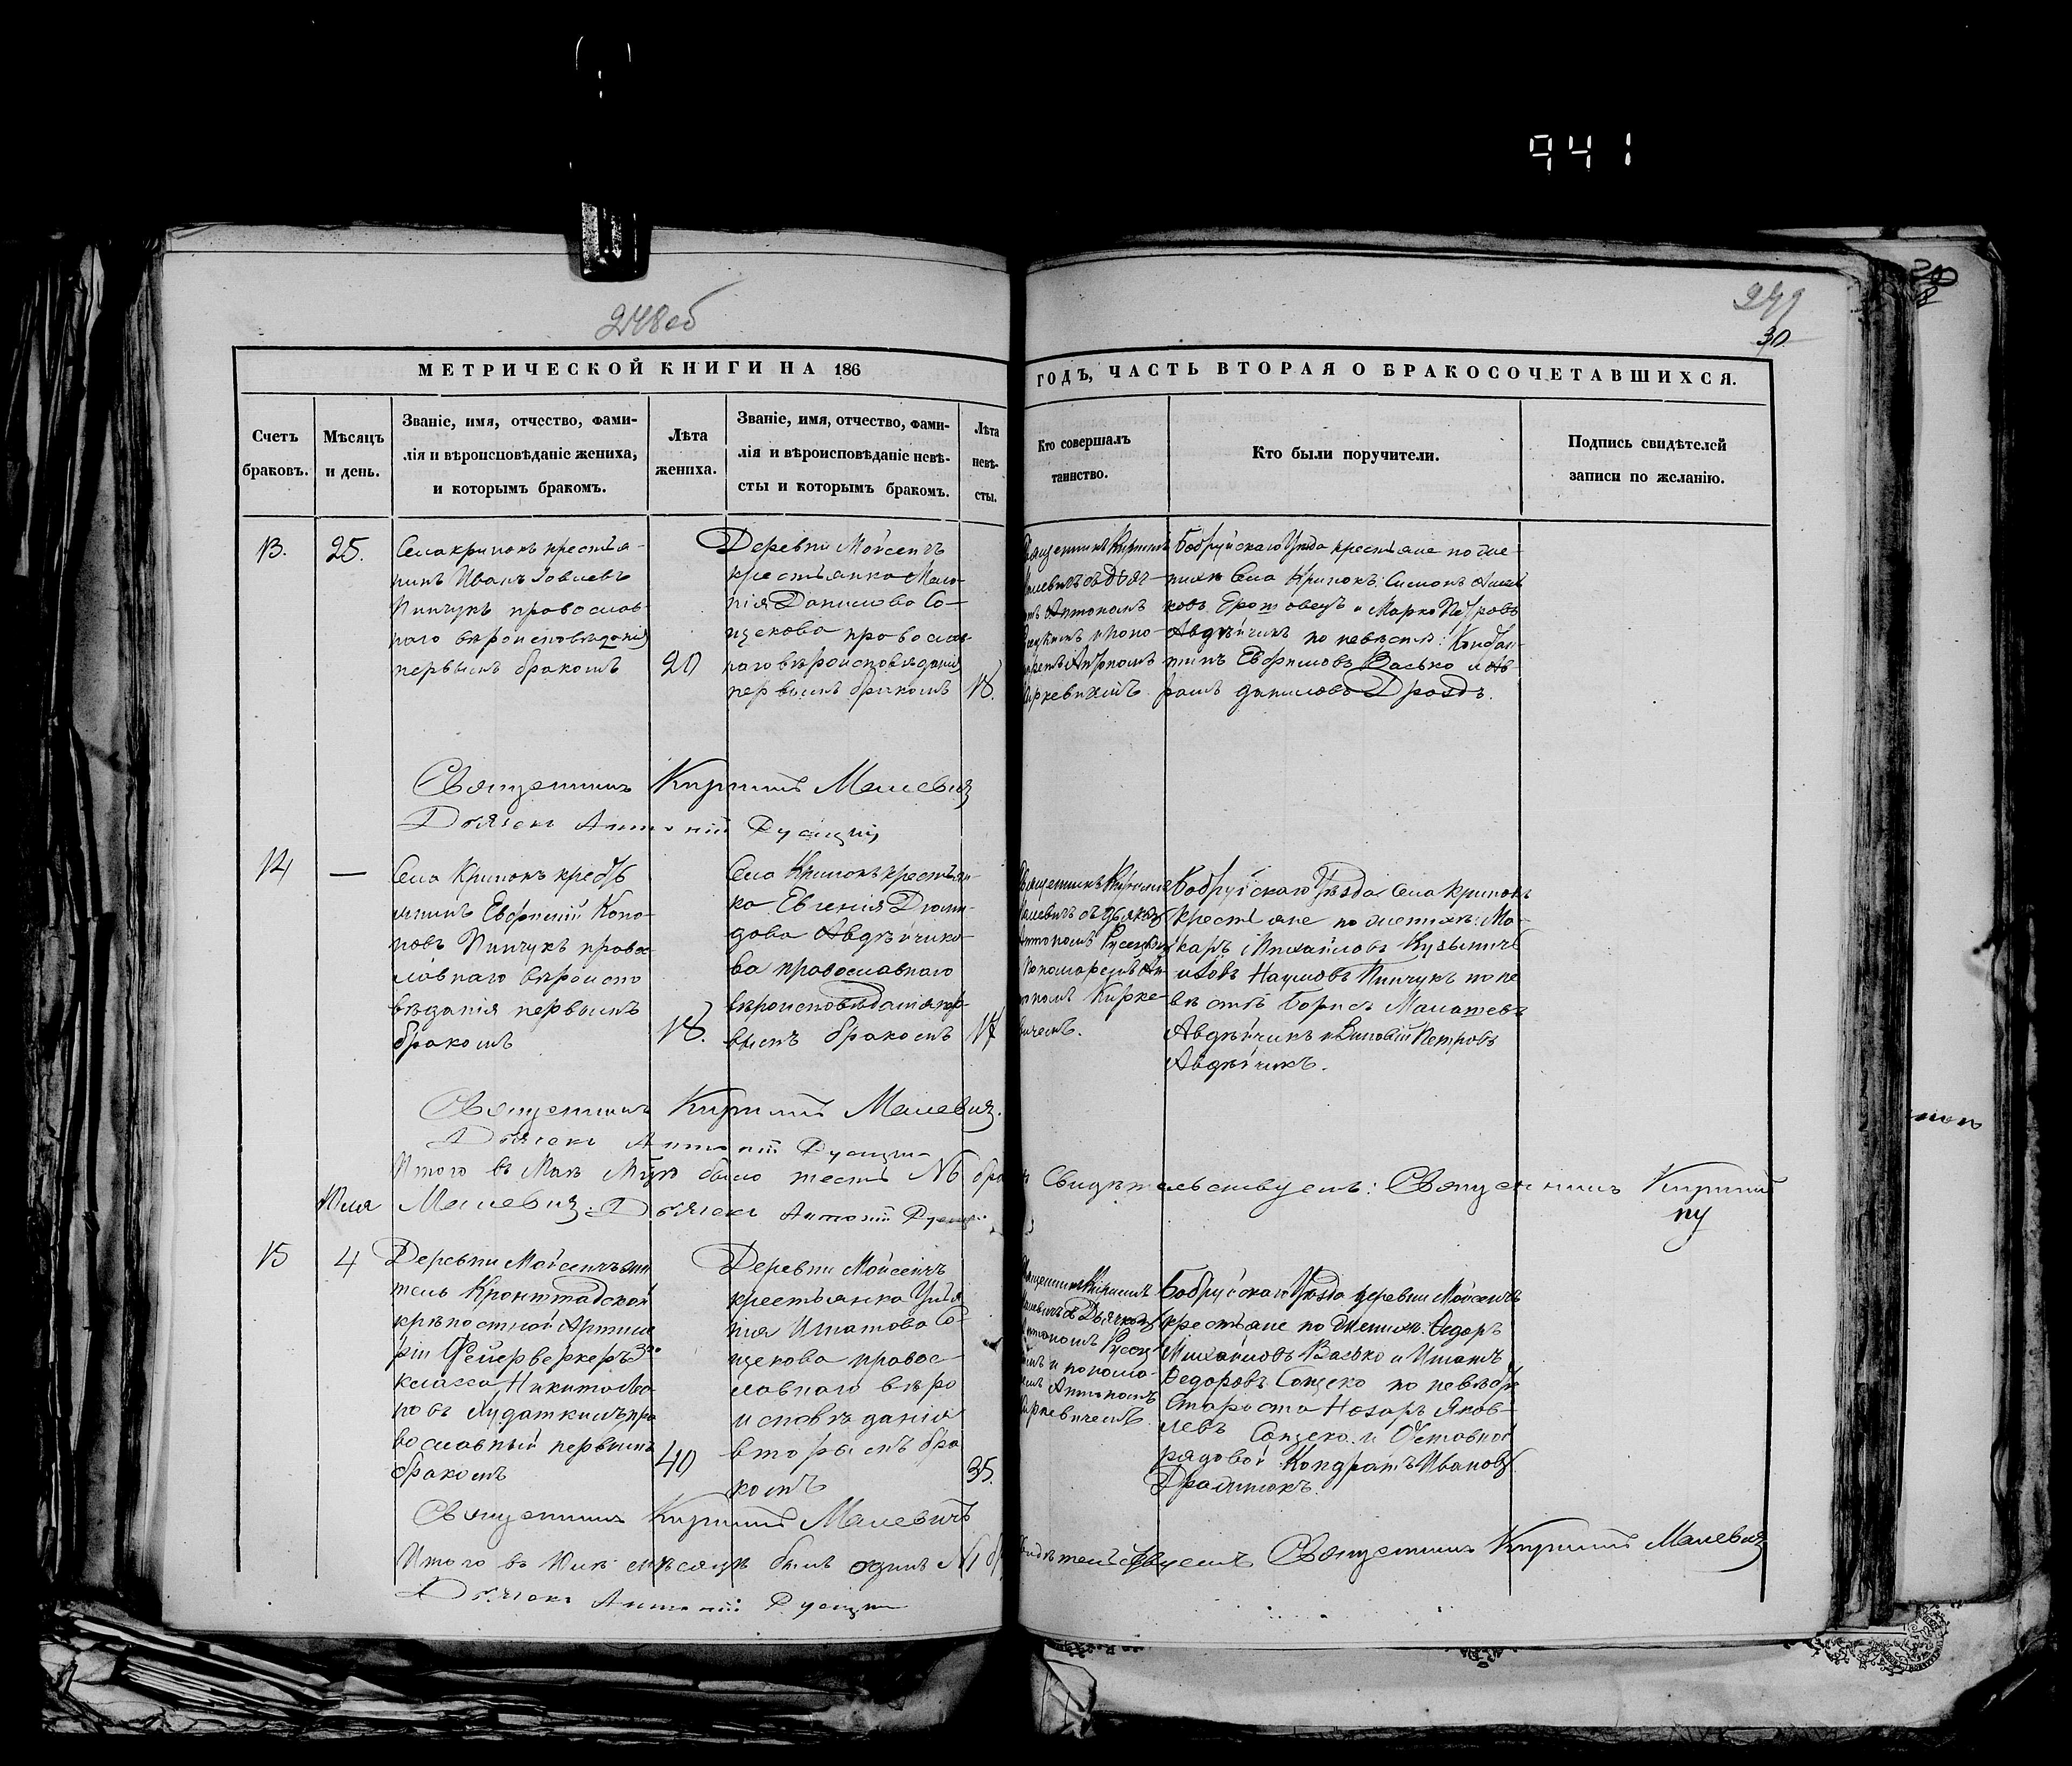 941
248об
249
30
МЕТРИЧЕСКОЙ КНИГИ НА 186
ГОДЪ, ЧАСТЬ ВТОРАЯ О БРАКОСОЧЕТАВШИХСЯ.
Счетъ браковъ.
Мѣсяцъ и день.
Званіе, имя, отчество, фами-
лія и вѣроисповѣданіе жениха,
и которымъ бракомъ.
Лѣта жениха.
Званіе, имя, отчество, фами-
лія и вѣроисповѣданіе невѣ-
сты и которымъ бракомъ.
Лѣта
невѣ-
сты.
Кто совершалъ
таинство.
Кто были поручители.
Подпись свидѣтелей
записи по желанію.
13.
25.
Села кринокъ крестья-
нинъ Иванъ Іовлевъ
Пинчукъ православ-
наго вѣроисповѣданія
первымъ бракомъ
20
Деревни Мойсеичъ
крестьянка Мала-
нія Данилова Со-
щекова православ-
наго вѣроисповѣданія
первымъ бракомъ
18.
Священникъ Кириллъ
Малевичъ съ Дьяч-
Бобруйскаго Уѣзда крестьяне по же-
нихѣ Села Кринокъ: Симонъ
и Марко Петровъ
Авдѣйчикъ по невѣстѣ: Кондра-
тій Евфимовъ Васько и Ав-
рамъ Даниловъ Дроздъ.
Священникъ Кириллъ Малевичъ
Дьячокъ Антоній Русецкій
14
—
Села Кринокъ кресть
янинъ Евфимій Коно-
новъ Пинчукъ право
славнаго вѣроиспо
вѣданія первымъ
бракомъ
18.
Села Кринокъ крестьян-
ка Евгенія Діоми-
дова Авдѣйчико-
ва православнаго
вѣроисповѣданія пер-
вымъ бракомъ
17
Священникъ Кирилъ
Малевичъ съ Дьячкомъ
Антономъ Русецкимъ
Пономаремъ Ан-
тономъ Кирке-
вичемъ.
Бобруйскаго Уѣзда Села Кринокъ
крестьяне по женихѣ: Ма-
каръ Михайловъ Кузьмичъ
и Іовъ Наумовъ Пинчукъ по не
вѣстѣ Борисъ
Авдѣйчикъ и Виковій Петровъ
Авдѣйчикъ.
Священникъ Кириллъ Малевичъ.
Дьячокъ Антоній Русецкій
Итого въ Маѣ Мцѣ было шесть №6 бра
Свидѣтельствуемъ: Священникъ Кириллъ
Малевичъ. Дьячокъ Антоній Русецкій
Іюля
15
4
Деревни Мойсеичъ жи
тель Кронштадской
крѣпостной Артиле
ріи Фейерверкеръ 3го
класса Никита
православный первымъ
бракомъ
40
Деревни Мойсеичъ
крестьянка Улья
на Игнатова Со-
щекова правос-
лавнаго вѣро
исповѣданія
вторымъ бра
комъ
35.
Бобруйскаго Уѣзда деревни Мойсеичъ
крестьяне по женихѣ: Ѳедоръ
Михайловъ Васько и Игнатъ
Ѳедоровъ Сощеко по невѣстѣ
Староста Назаръ Яков-
левъ Сощеко и Отставной
рядовой Кондратъ Ивановъ
Священникъ Кириллъ Малевичъ
Итого въ Іюлѣ мѣсяцѣ былъ одинъ №1 бр
Свидѣтельствуемъ Священникъ Кириллъ Малевичъ
Дьячокъ Антоній Русецкій